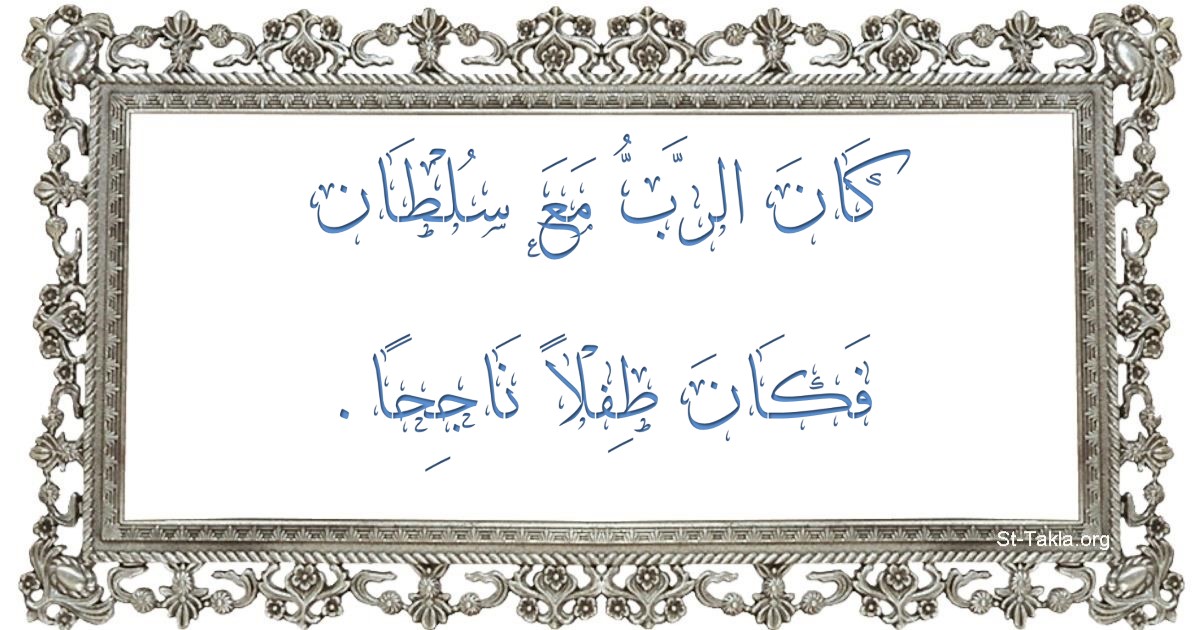 كَانَ الربَُّّ مَعَ سُلْطَان
فَكَانَ طِفْلاً نَاجِحًا .
St-Takla.org